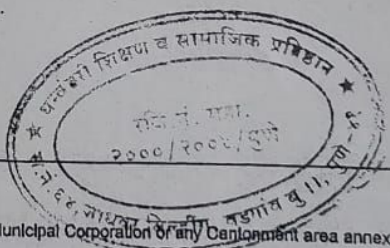 ★ धन्वंतरी शिक्षण व सामाजिक प्रतिष्ठान ★
रजि. नं. महा.
२०००/२००१/पुणे
स.नं.६४, वडगांव बु ॥, पुणे-४१
Municipal Corporation or any Cantonment area annex